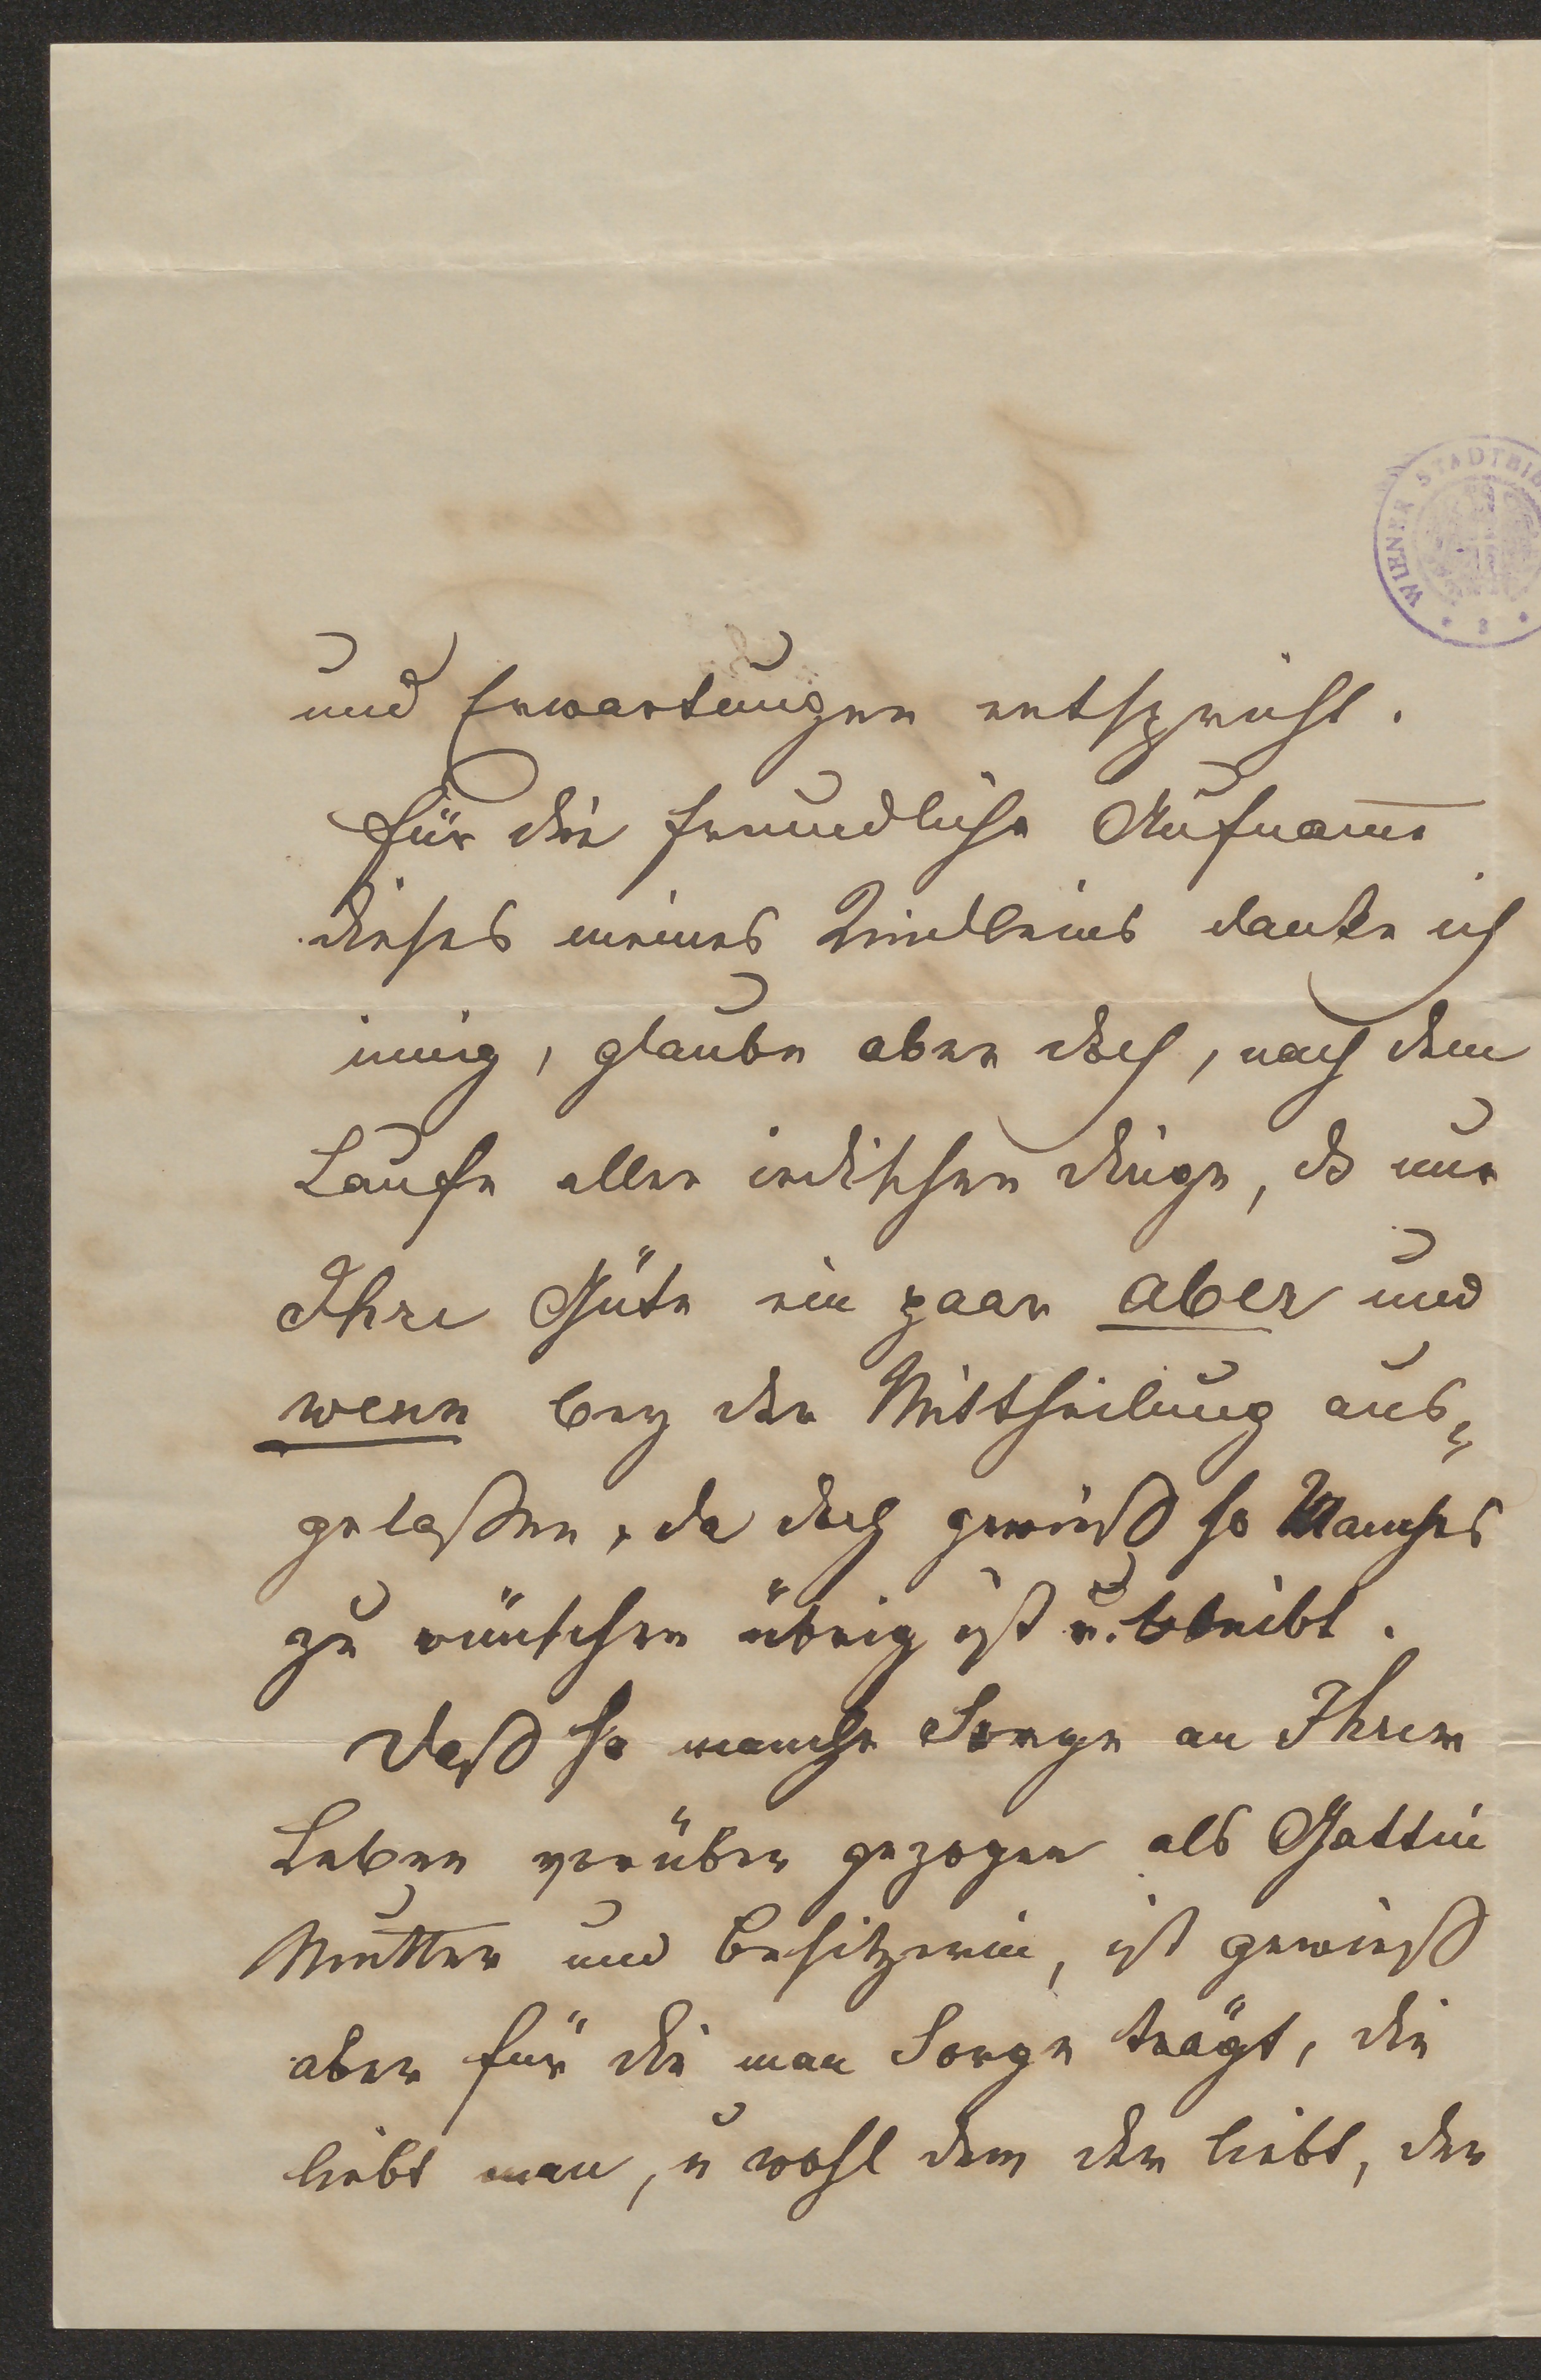 WIENER STADTBIB
und Erwartungen entspricht.
Für die freundliche Aufname
dieses meines Kindleins danke ich
innig, glaube aber doch, nach dem
Laufe aller irdischen Dinge, es nur
Ihre Güte ein paar aber und
wenn bey der Mittheilung aus=
gelaßen, da doch gewiß so Manches
zu wünschen übrig ist u. bleibt.
Daß so manche Sorge an Ihrem
Leben vorüber gezogen als Gattin
Mutter und Besitzerin, ist gewieß
aber für die man Sorge trägt, die
liebt man, u wohl dem der liebt, der